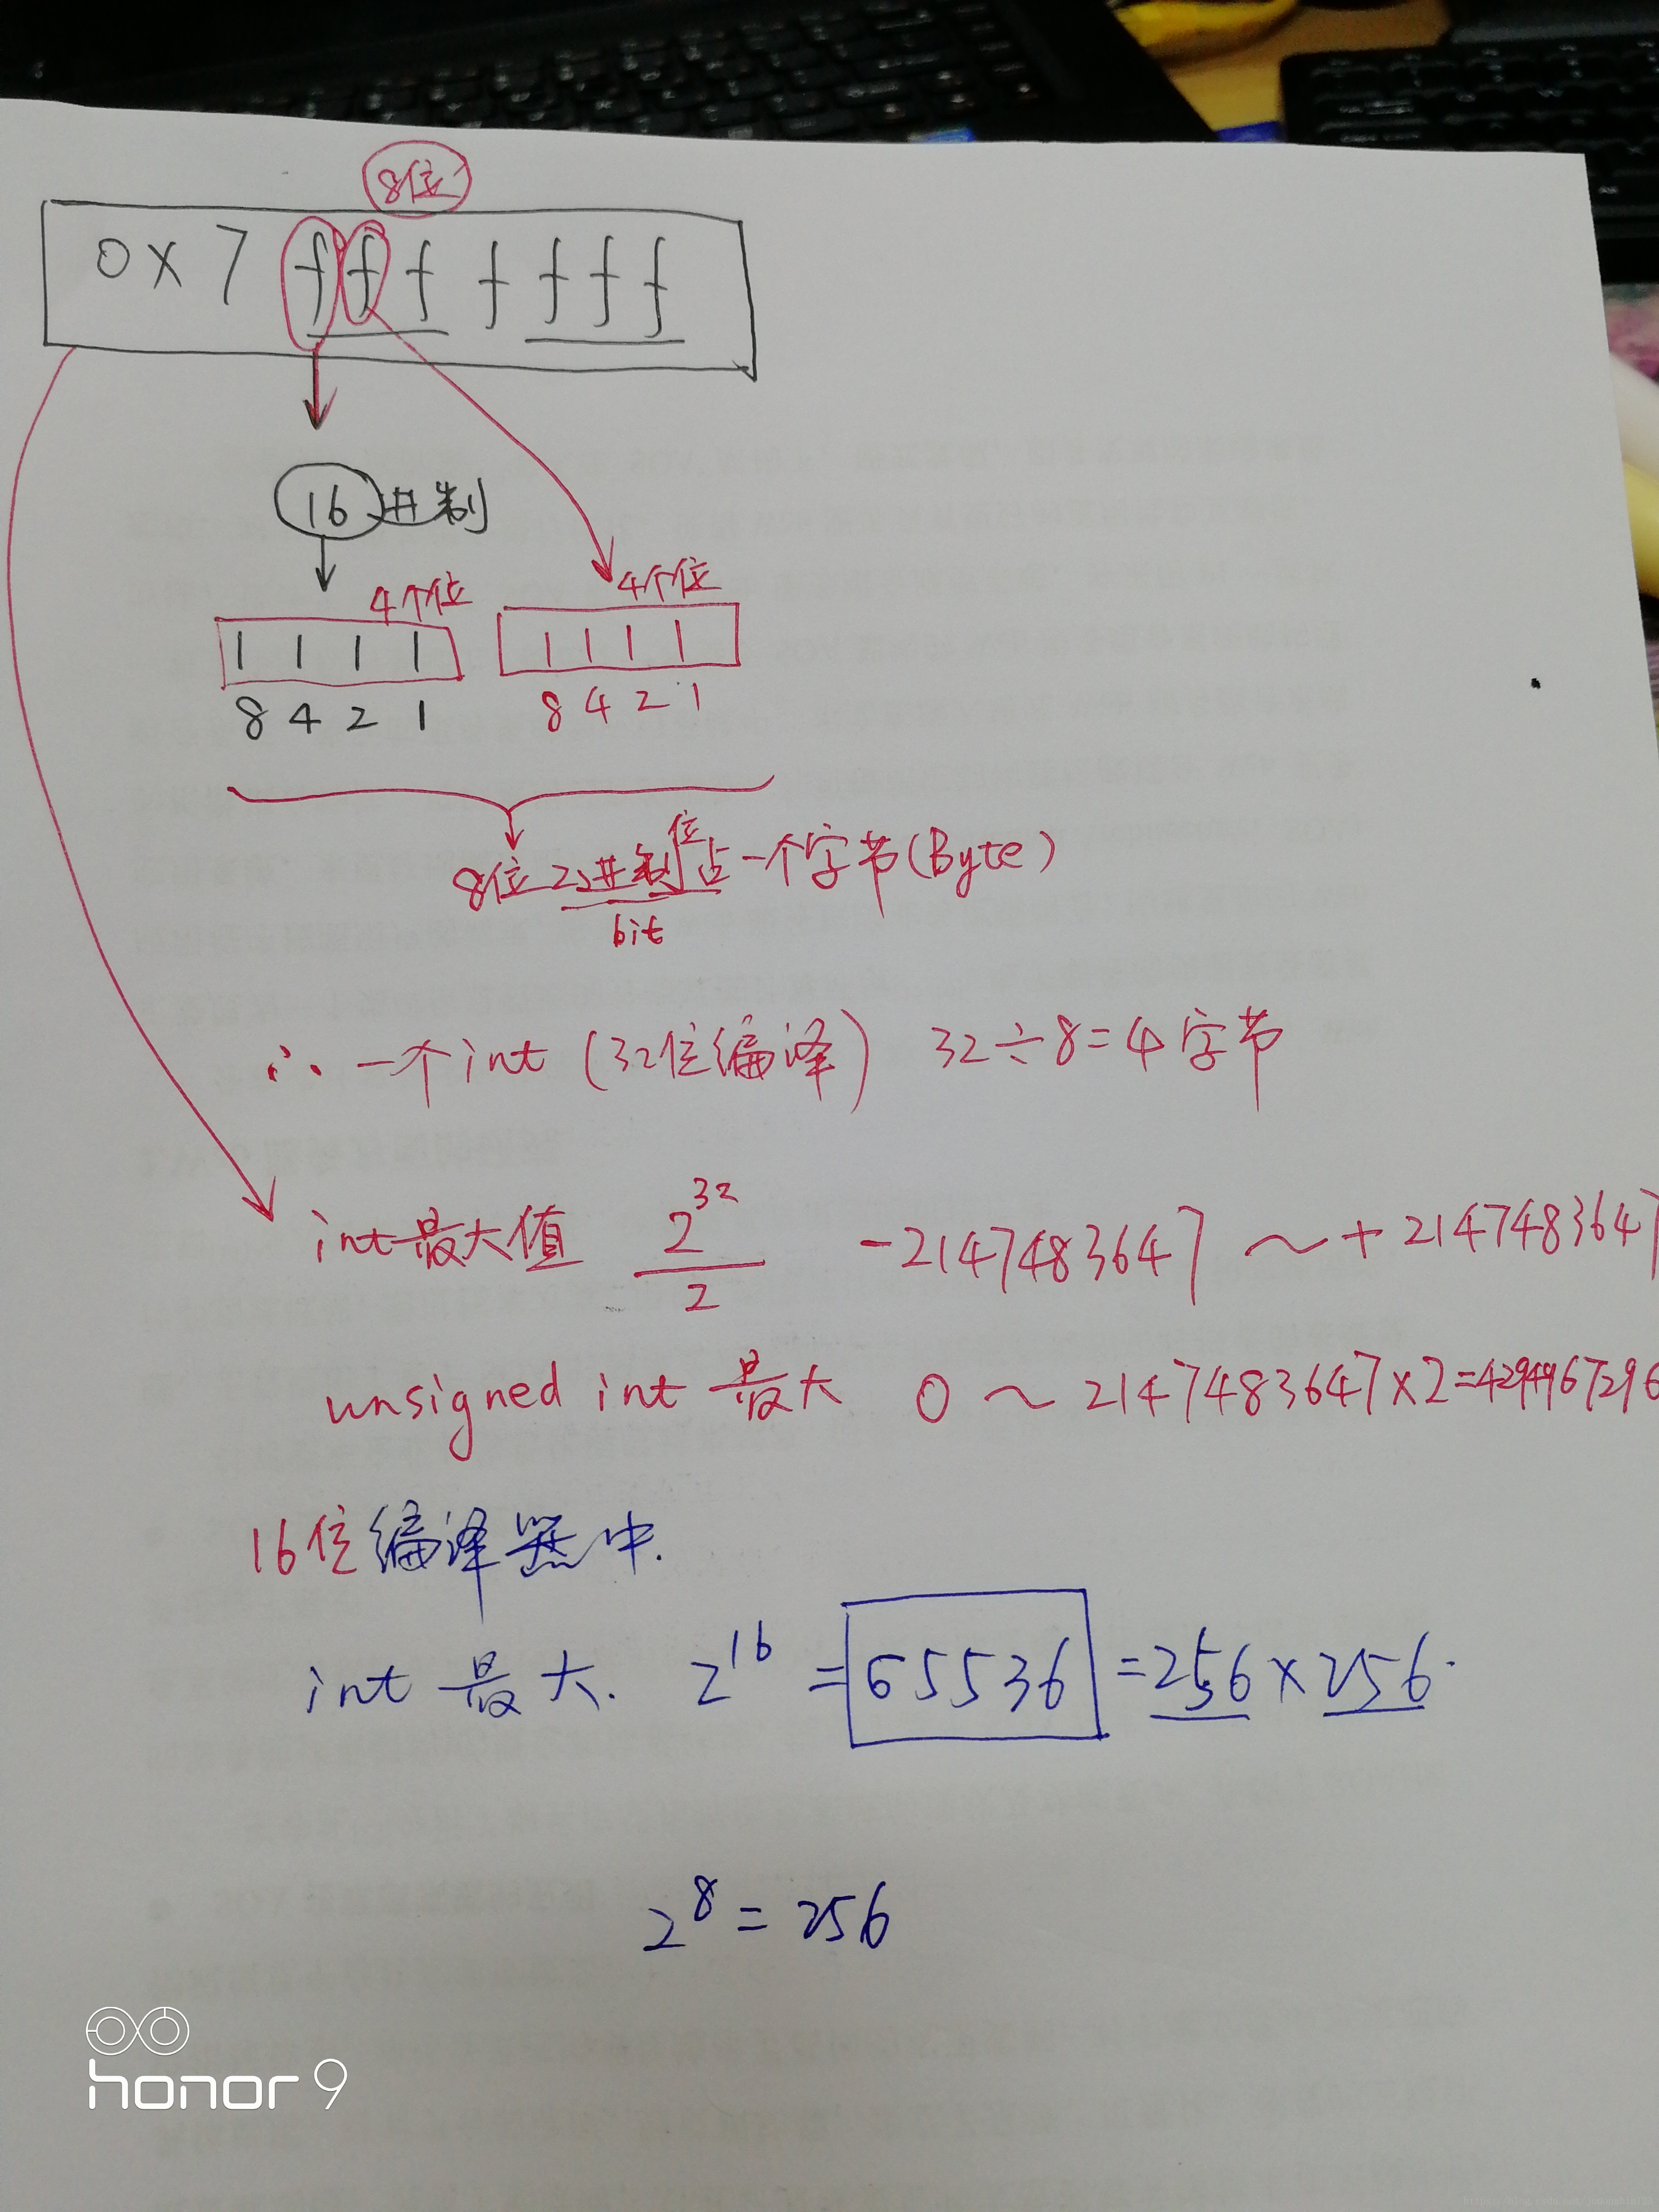 8位
0x7fffffff
16进制
4个位 4个位
1 1 1 1 1 1 1 1
8 4 2 1 8 4 2 1
8位2进制位占一个字节(Byte)
bit
∴ 一个int (32位编译) 32÷8=4字节
int最大值 2^32/2 -2147483647 ~ +2147483647
unsigned int 最大 0 ~ 2147483647×2=4294967296
16位编译器中.
int 最大. 2^16 = 65536 = 256×256.
2^8 = 256
honor 9